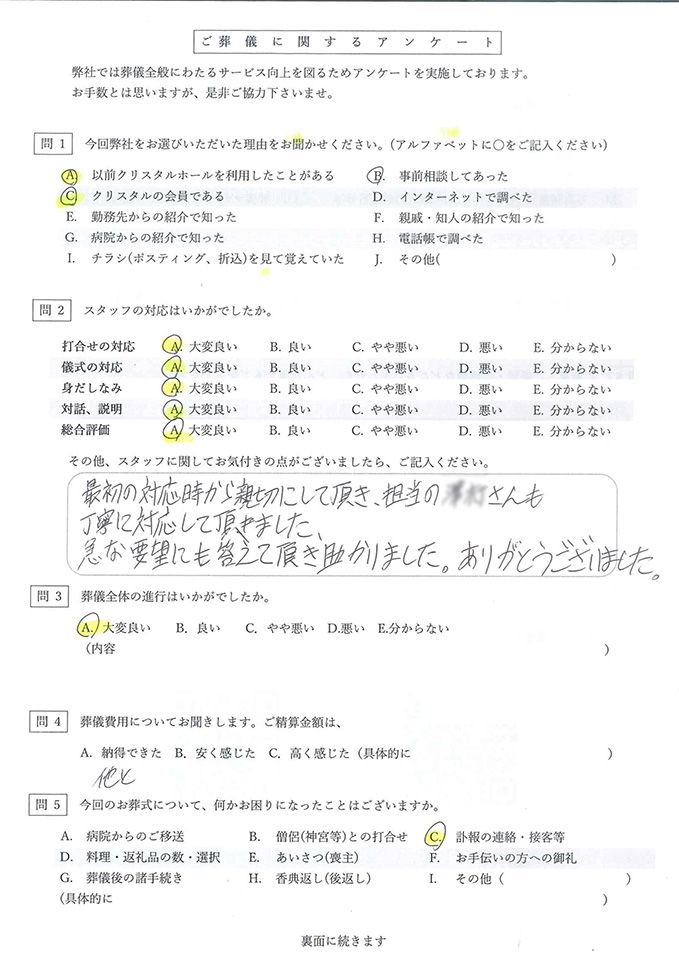 ご葬儀に関するアンケート
弊社では葬儀全般にわたるサービス向上を図るためアンケートを実施しております。
お手数とは思いますが、是非ご協力下さいませ。
問 1 今回弊社をお選びいただいた理由をお聞かせください。(アルファベットに○をご記入ください)
A. 以前クリスタルホールを利用したことがある B. 事前相談してあった
C. クリスタルの会員である D. インターネットで調べた
E. 勤務先からの紹介で知った F. 親戚・知人の紹介で知った
G. 病院からの紹介で知った H. 電話帳で調べた
I. チラシ(ポスティング、折込)を見て覚えていた J. その他( )
問 2 スタッフの対応はいかがでしたか。
打合せの対応 A. 大変良い B. 良い C. やや悪い D. 悪い E. 分からない
儀式の対応 A. 大変良い B. 良い C. やや悪い D. 悪い E. 分からない
身だしなみ A. 大変良い B. 良い C. やや悪い D. 悪い E. 分からない
対話、説明 A. 大変良い B. 良い C. やや悪い D. 悪い E. 分からない
総合評価 A. 大変良い B. 良い C. やや悪い D. 悪い E. 分からない
その他、スタッフに関してお気付きの点がございましたら、ご記入ください。
最初の対応時から親切にして頂き、担当の さんも
丁寧に対応して頂きました、
急な要望にも答えて頂き助かりました。ありがとうございました。
問 3 葬儀全体の進行はいかがでしたか。
A. 大変良い B. 良い C. やや悪い D.悪い E.分からない
(内容 )
問 4 葬儀費用についてお聞きします。ご精算金額は、
A. 納得できた B. 安く感じた C. 高く感じた (具体的に )
他と
問 5 今回のお葬式について、何かお困りになったことはございますか。
A. 病院からのご移送 B. 僧侶(神宮等)との打合せ C. 訃報の連絡・接客等
D. 料理・返礼品の数・選択 E. あいさつ(喪主) F. お手伝いの方への御礼
G. 葬儀後の諸手続き H. 香典返し(後返し) I. その他 ( )
(具体的に )
裏面に続きます